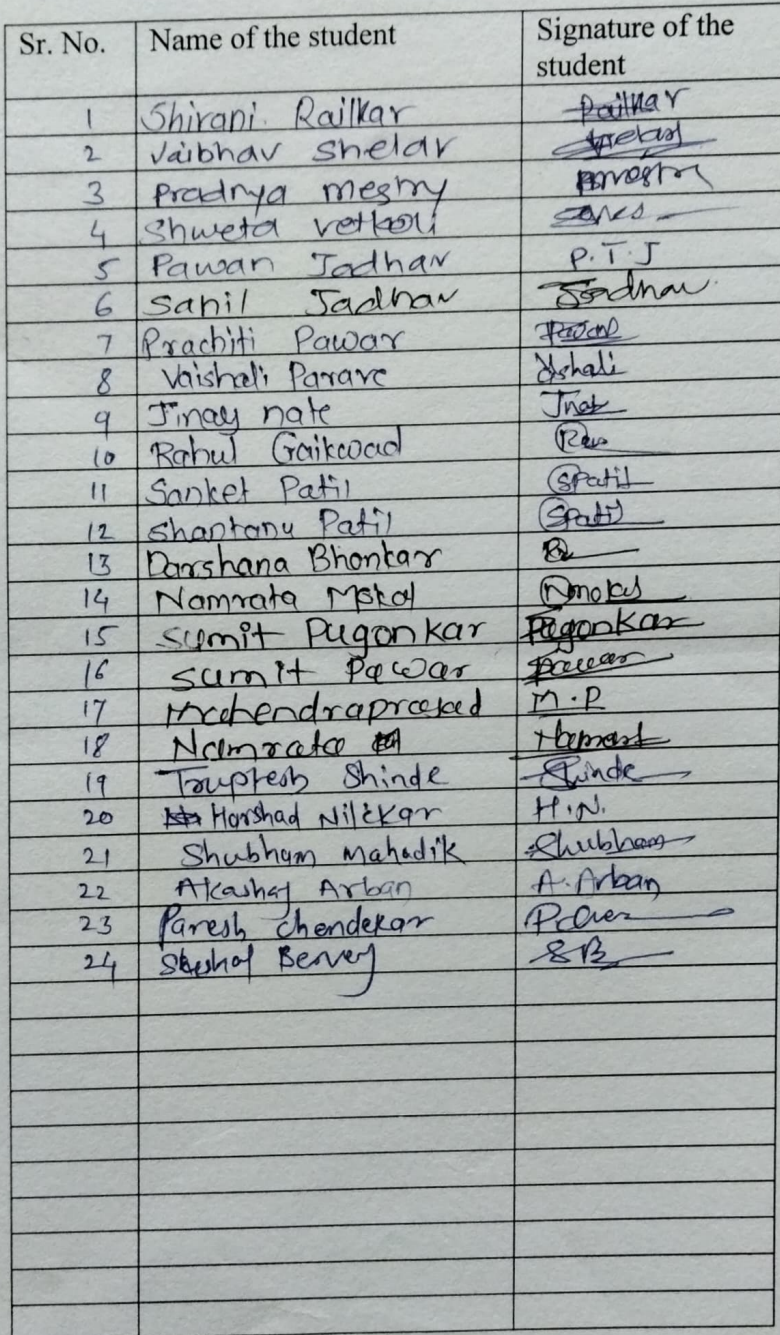 Sr. No. Name of the student Signature of the student
1 Shivani Railkar Railkar
2 Vaibhav Shelar Shelar
3 Pradnya mestry
4 Shweta vetkoli
5 Pawan Jadhav P.T.J
6 Sahil Jadhav Jadhav
7 Prachiti Pawar Pawar
8 Vaishali Parave Vshali
9 Jinay nate
10 Rahul Gaikwad
11 Sanket Patil SPatil
12 Shantanu Patil SPatil
13 Darshana Bhonkar
14 Namrata
15 Sumit Pugonkar Pugonkar
16 Sumit Pawar Pawar
17 Mahendraprasad M.P
18 Namrata
19 Truptesh Shinde Shinde
20 Harshad Nilekar H.N.
21 Shubham Mahadik Shubham
22 Akashay Arban A. Arban
23 Paresh Chendekar
24 SB